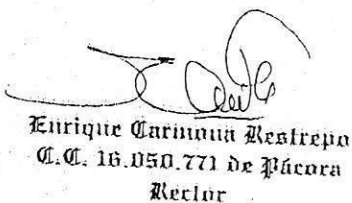 Enrique Carmona Restrepo
C.C. 16.050.771 de Pácora
Rector